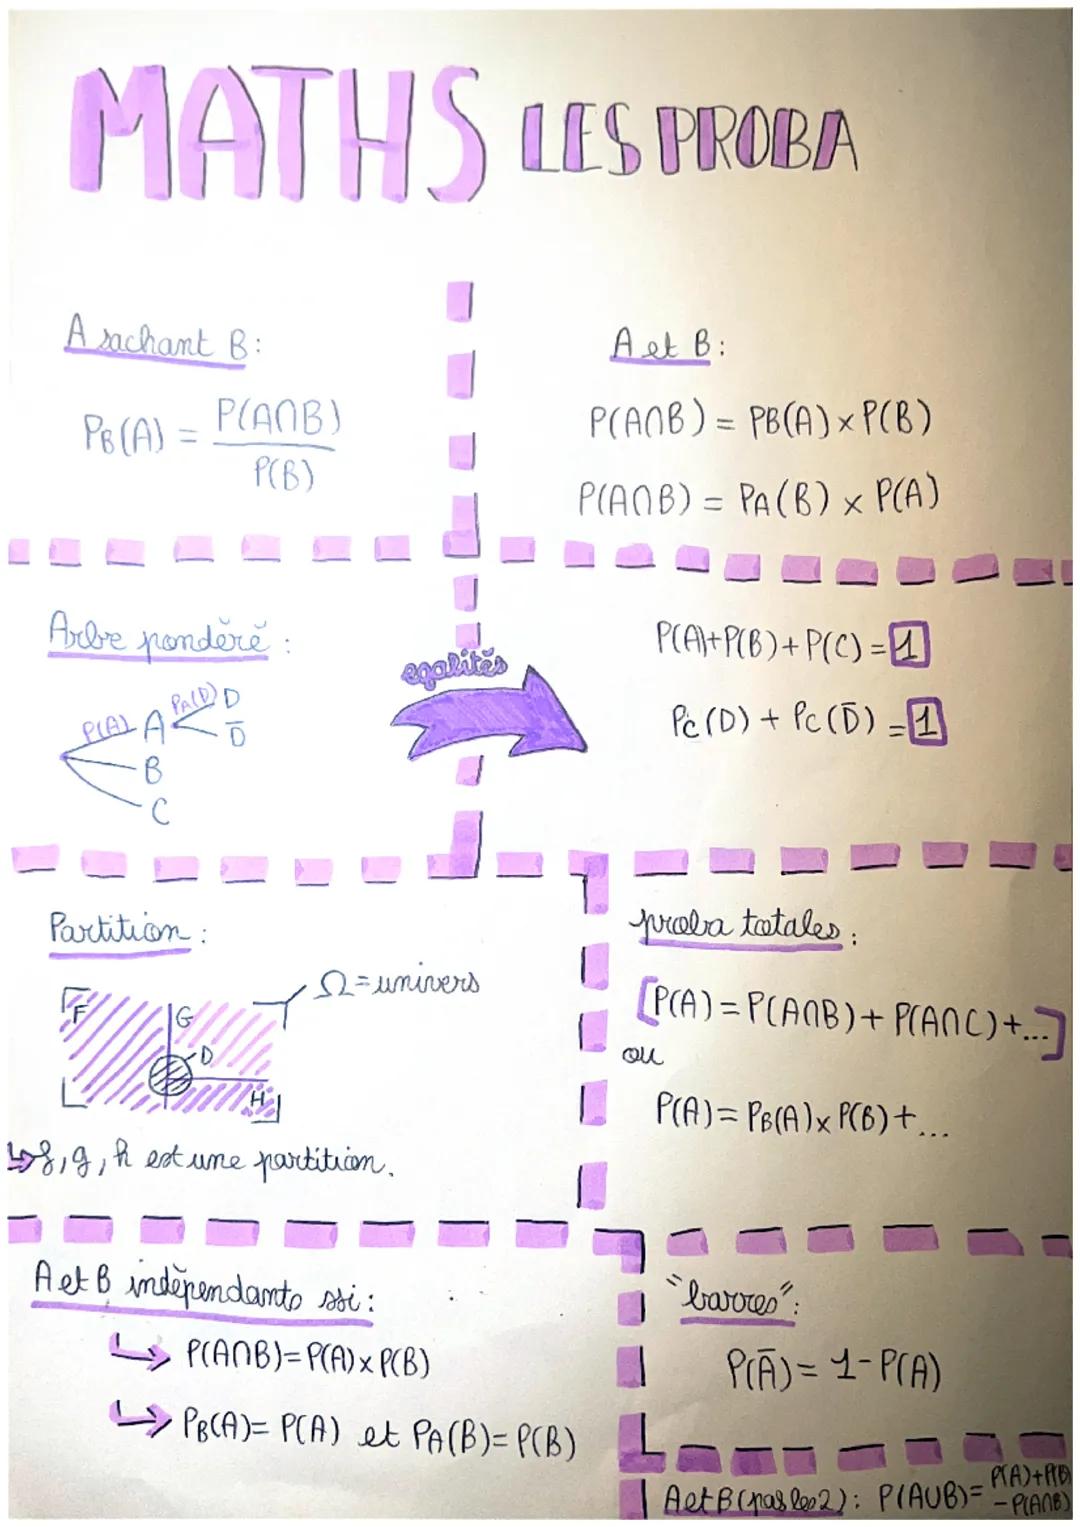 MATHS LES PROBA
A sachant B:
PB(A) = P(A∩B)
P(B)
A et B:
P(A∩B) = PB(A) × P(B)
P(A∩B) = PA(B) × P(A)
Arbre pondéré :
P(A) A PA(D) D
D̄
B
C
egalités
P(A)+P(B)+P(C) = 1
PC(D) + PC(D̄) = 1
Partition :
Ω = univers
F
G
D
H
↳ f, g, h est une partition.
proba totales :
[P(A) = P(A∩B) + P(A∩C) +...]
ou
P(A) = PB(A) × P(B) + ...
A et B indépendants ssi :
↳ P(A∩B) = P(A) × P(B)
↳ PB(A) = P(A) et PA(B) = P(B)
"barres" :
P(Ā) = 1 - P(A)
A et B (pas les 2) : P(A∪B) = P(A)+P(B)
-P(A∩B)